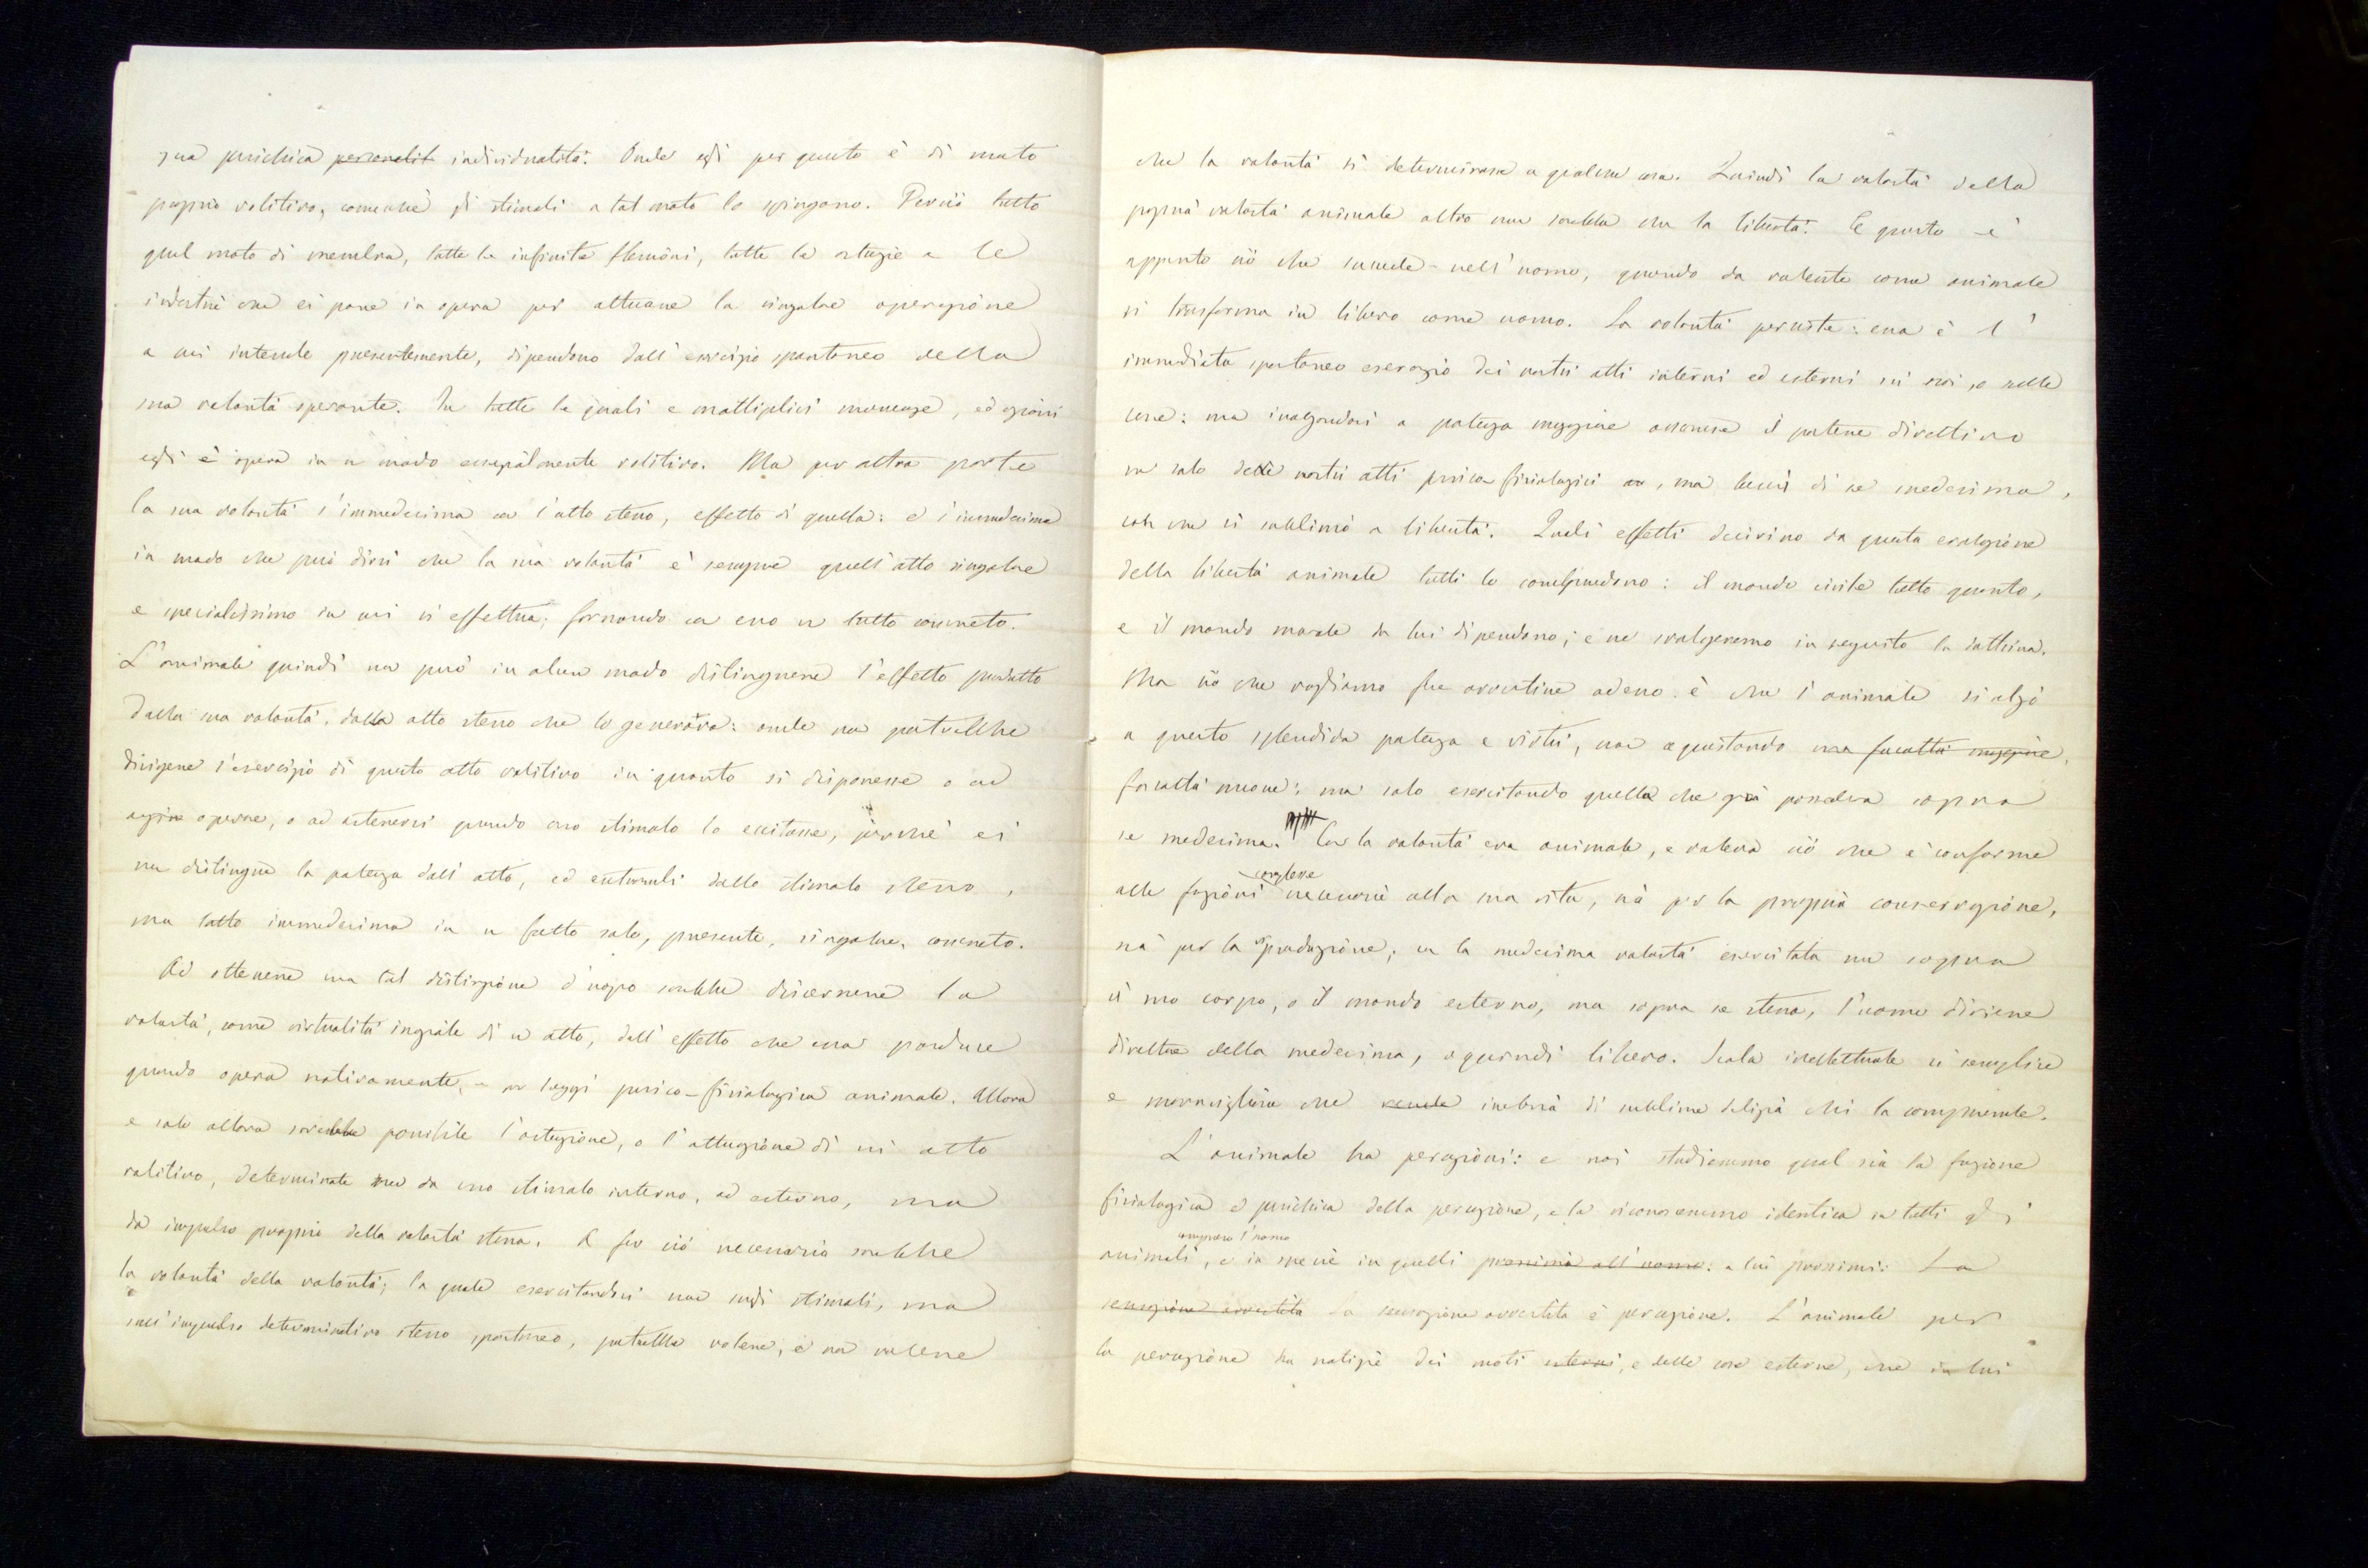 sua psichica personalit individualità. Onde egli per questo è di moto
proprio volitivo, comecchè gli stimoli a tal moto lo spingano. Perciò tutto
quel moto di membra, tutte le infinite flessioni, tutte le astuzie e le
industrie che ei pone in opera per attuare la singolare operazione
a cui intende presentemente, dipendono dall'esercizio spontaneo della
sua volontà operante. In tutte le quali e moltiplici movenze, ed azioni
egli è opera in un modo essenzialmente volitivo. Ma per altra parte
la sua volontà s'immedesima con l'atto stesso, effetto di quella: e s'immedesima
in modo che può dirsi che la sua volontà è sempre quell'atto singolare
e specialissimo in cui si effettua; formando con esso un tutto concreto.
L'animale quindi non può in alcun modo distinguere l'effetto prodotto
dalla sua volontà, dallo atto stesso che lo generava: onde non potrebbe
dirigere l'esercizio di questo atto volitivo in quanto si disponesse o ad
agire operare, o ad astenersi quando uno stimolo lo eccitasse, perchè ei
non distingue la potenza dall'atto, ed entrambi dallo stimolo stesso,
ma tutto immedesima in un fatto solo, presente, singolare, concreto.
Ad ottenere una tal distinzione d'uopo sarebbe discernere la
volontà, come virtualità iniziale di un atto, dall'effetto che essa produce
quando opera nativamente, e con leggi psico-fisiologica animale. Allora
e solo allora sarebbe possibile l'astensione, o l'attuazione di un atto
volitivo, determinato non da uno stimolo interno, od esterno, ma
da impulso proprio della volontà stessa. A far ciò necessaria sarebbe
la volontà della volontà; la quale esercitandosi non sugli stimoli, ma
sull'impulso determinativo stesso spontaneo, potrebbe volere, e non volere
che la volontà si determinasse a qualche cosa. Quindi la volontà della
propria volontà animale altro non sarebbe che la libertà. E questo è
appunto ciò che succede nell'uomo, quando da volente come animale
si trasforma in libero come uomo. La volontà persiste: essa è l'
immediato spontaneo esercizio dei nostri atti interni ed esterni su noi, o nelle
cose: ma inalzandosi a potenza maggiore assume il potere direttivo
non solo delli nostri atti psico-fisiologici, ma bensì di se medesima,
con che si sublimò a libertà. Quali effetti derivino da questa evoluzione
della libertà animale tutti lo comprendono: il mondo civile tutto quanto,
e il mondo morale da lui dipendono; e ne svolgeremo in seguito la dottrina.
Ma ciò che vogliamo fare avvertire adesso è che l'animale si alzò
a questa splendida potenza e virtù, non acquistando una facoltà maggiore,
facoltà nuove: ma solo esercitando quella che già possedeva sopra
se medesima. Con la volontà era animale, e voleva ciò che è conforme
complesse
alle funzioni necessarie alla sua vita, sia per la propria conservazione,
sia per la riproduzione; con la medesima volontà esercitata non sopra
il suo corpo, o il mondo esterno, ma sopra se stessa, l'uomo diviene
direttore della medesima, e quindi libero. Scala intellettuale sì semplice
e maravigliosa che rende inebria di sublime delizia chi la comprende.
L'animale ha percezioni: e noi studiammo qual sia la funzione
fisiologica e psichica della percezione, e la riconoscemmo identica in tutti gli
compreso l'uomo
animali, e in specie in quelli prossimi all'uomo: a lui prossimi: La
sensazione avvertita la sensazione avvertita è percezione. L'animale per
la percezione ha notizie dei moti esterni, e delle cose esterne, che in lui